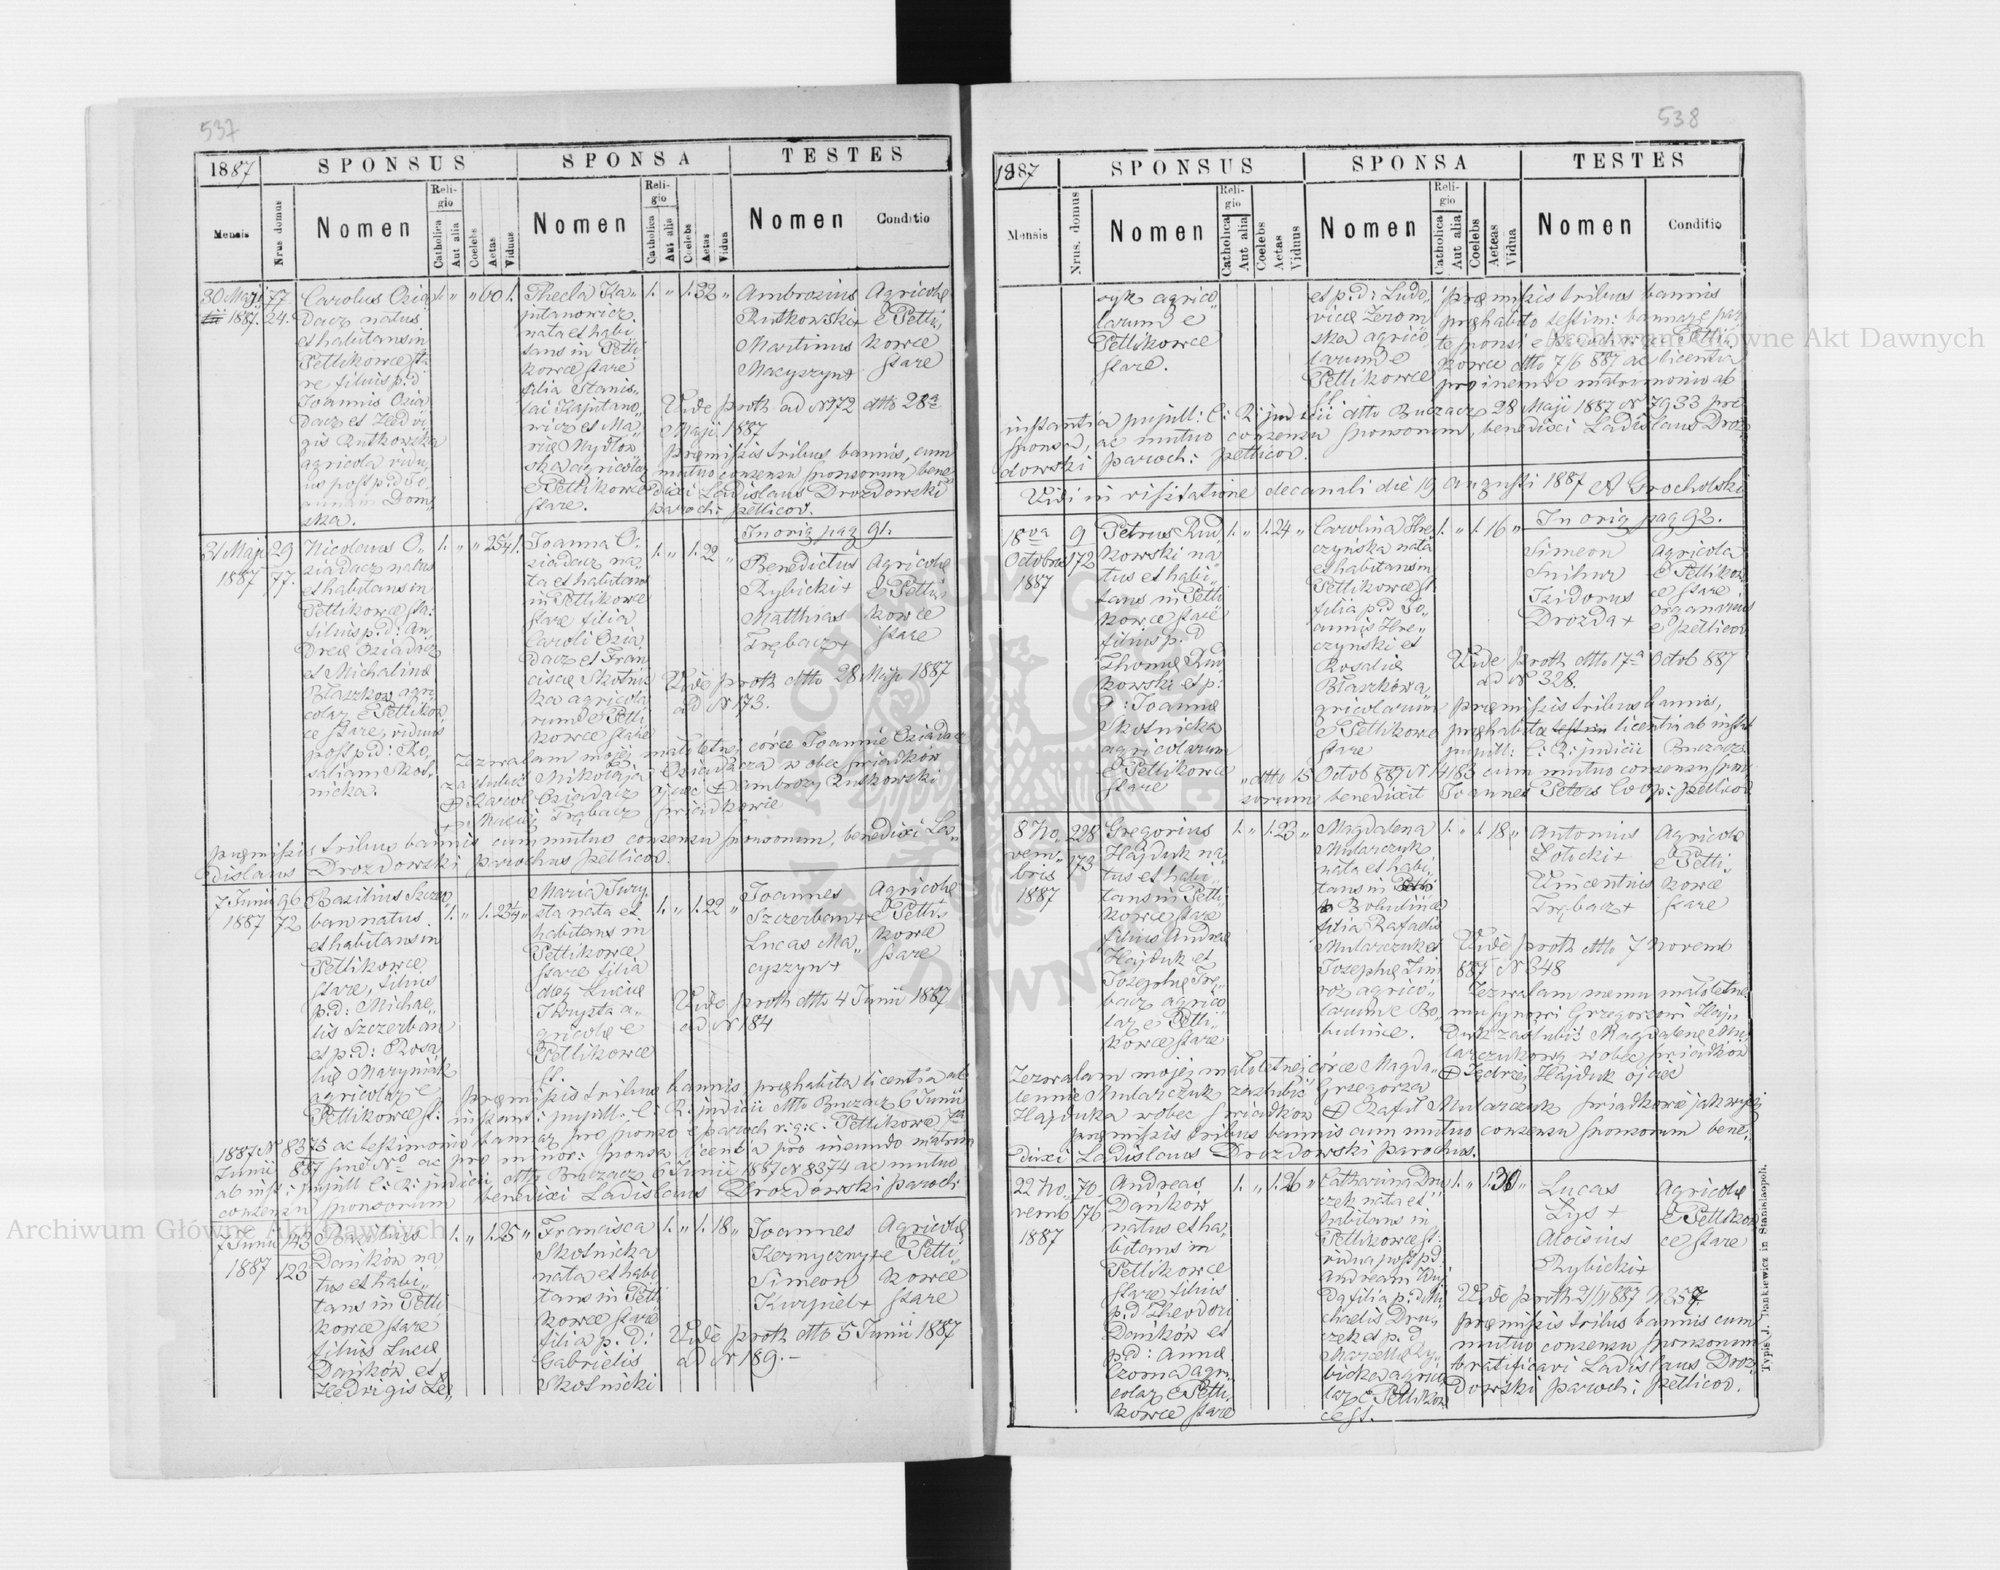 537
1887
SPONSUS
SPONSA
TESTES
Mensis
Nrus domus
Nomen
Religio
Catholica
Aut alia
Coelebs
Aetas
Viduus
Nomen
Religio
Catholica
Aut alia
Coelebs
Aetas
Vidua
Nomen
Conditio
30 Maji
1887.
77.
24.
Carolus Ozia
dacz natus
et habitans in
Petlikowce sta
re filius p.d
Joannis Ozia
dacz et Hedvi
gis Rutkowska
agricola vidu
us post p.d Jo
annam Dom
ska.
1. " " 60 1.
Thecla Ka
jutanowicz
nata et habi
tans in Petli
kowce stare
filia Stanis
lai Kajutano
wicz et Ma
riæ Mydłow
ska agricolar
e Petlikowce
stare.
1. " 1. 32 "
Ambrozius
Rutkowski +
Martinus
Macyszyn +
Agricolæ
e Petli
kowce
stare
Vide proth ad N 172 dtto 28a
Maji 1887
Præmissis tribus bannis, cum
mutuo consensu sponsorum bene
dixi Ladislaus Drozdowski
paroch: petlicov.
In orig pag 91.
31 Maji
1887
29
77.
Nicolaus O
ziadacz natus
et habitans in
Petlikowce sta:
filius p.d: An
dreæ Oziadacz
et Michalinæ
Błaszkow agri
colar e Petlikow
ce stare, viduus
post p.d: Ro
saliam Skol
nicka.
1. " " 25 1/4 1.
Joanna O
ziadacz na
ta et habitans
in Petlikowce
stare filia
Caroli Ozia
dacz et Fran
ciscæ Skolnic
ka agricola
rum e Petli
kowce stare
1. " 1. 22 "
Benedictus
Rybicki +
Matthias
Trębacz +
Agricolæ
e Petli
kowce
stare
Vide proth dtto 28 Maji 1887
ad N 173.
Zezwalam mojej małoletnej córce Joannie Oziadacz
zaślubić Mikołaja Oziadacza wobec świadków
+ Karol Oziadacz ojciec + Ambroży Rutkowski
+ Maciej Trębacz świadkowie
præmissis tribus bannis cum mutuo consensu sponsorum, benedixi La
dislaus Drozdowski parochus petlicov.
7 Junii
1887
96
72
Basilius Szczer
ban natus
et habitans in
Petlikowce
stare, filius
p.d: Michae
lis Szczerban
et p.d: Rosa
liæ Maryniak
agricolar e
Petlikowce st:
1. " 1. 23 1/4 "
Maria Jury
sta nata et
habitans in
Petlikowce
stare filia
Luciæ
agricolæ e
Petlikowce
st.
1. " 1. 22 "
Joannes
Szczerban +
Lucas Ma
cyszyn +
Agricolæ
e Petli
kowce
stare
Vide proth dtto 4 Junii 1887
ad N 184
præmissis tribus bannis præhabita licentia ab
instant: pupill: C: R: judicii dtto Buczacz 6 Junii
1887 N 8375 ac testimonio bannar pro sponso e paroch r: g: c: Petlikowce 7a
Junii 887 sine No ac pro minor: sponsa licentia pro ineundo matrim
ab inst: pupill C: R: judicii dtto Buczacz 6 Junii 1887 N 8374 ac mutuo
consensu sponsorum benedixi Ladislaus Drozdowski paroch
7 Junii
1887
143
123
Basilius
Dańków na
tus et habi
tans in Petli
kowce stare
filius Lucæ
Dańków et
Hedvigis Le
1. " 1. 25 "
Francisca
Skolnicka
nata et habi
tans in Petli
kowce stare
filia p.d:
Gabrielis
Skolnicki
1. " 1. 18 "
Joannes
Kernyczny +
Simeon
Kurpiel +
Agricolæ
e Petli
kowce
stare
Vide proth dtto 5 Junii 1887
ad N 189.-
Archiwum Główne Akt Dawnych
538
1887
SPONSUS
SPONSA
TESTES
Mensis
Nrus. domus
Nomen
Religio
Catholica
Aut alia
Coelebs
Aetas
Viduus
Nomen
Religio
Catholica
Aut alia
Coelebs
Aeteas
Vidua
Nomen
Conditio
szyk agrico
larum e
Petlikowce
stare.
et p.d: Ludo
vicæ Żerom
ska agrico
larum e
Petlikowce
st.
præmissis tribus bannis
præhabito testim: bannar e par
te sponsi e paroch: r: g: c: Petli
kowce dtto 7/6 887 ac licentia
pro ineundo matrimonio ab
instantia pupill: C: R: judicii dtto Buczacz 28 Maji 1887 N 7933 pro
sponsa, ac mutuo consensu sponsorum, benedixi Ladislaus Droz
dowski paroch: petlicov.
Vidi in visitatione decanali die 19 augusti 1887 A Grocholski
In orig pag 92.
18va
Octobris
1887
9
172
Petrus Rud
kowski na
tus et habi
tans in Petli
kowce stare
filius p.d
Thomæ Rud
kowski et p:
d: Joannæ
Skolnicka
agricolarum
e Petlikowce
stare
1. " 1. 24 "
Carolina Hre
czyńska nata
et habitans in
Petlikowce st.
filia p.d Jo
annis Hre
czyński et
Rosaliæ
Błaszków a
gricolarum
e Petlikowce
stare
1. " 1. 16 "
Simeon
Snihur
Isidorus
Drozda +
Agricola
e Petlikow
ce stare
organarius
e petlicov
Vide proth dtto 17a Octob 887
ad N 328.
præmissis tribus bannis,
præhabita licentia ab instat
pupill: C: R: judicii Buczacz
dtto 15 Octob 887 N 14183 cum mutuo consensu spon
sorum benedixit Joannes Peters Coop: petlicov
8 No
vem
bris
1887
228
173
Gregorius
Hajduk na
tus et habi
tans in Petli
kowce stare
filius Andreæ
Hajduk et
Josephæ Trę
bacz agrico
lar e Petli
kowce stare
1. " 1. 23 "
Magdalena
Mularczuk
nata et habi
tans in
Bobulińce
filia Rafaelis
Mularczuk et
Josephæ Zim
roz agrico
larum e Bo
bulince.
1. " 1. 18 "
Antonius
Łotocki +
Vincentius
Trębacz +
Agricolæ
e Petli
kowce
stare
Vide proth dtto 7 Novemb
887 N 348
Zezwalam memu małoletne
mu synowi Grzegorzowi Haju
duk zaślubić Magdalenę Mu
larczukową wobec świadków
+ Jędrzej Hajduk ojciec
Zezwalam mojej małoletnej córce Magda
lennie Mularczuk zaślubić Grzegorza
Hajduka wobec świadków + Rafał Mularczuk świadkowie jak wyżej
præmissis tribus bannis cum mutuo consensu sponsorum bene
dixi Ladislaus Drozdowski parochus.
22 No
vemb
1887
70
176
Andreas
Dańków
natus et ha
bitans in
Petlikowce
stare filius
p.d Theodori
Dańków et
p.d: Annæ
Czorna agri
colar e Petli
kowce stare
1. " 1. 26 "
Catharina Dru
czek nata et
habitans in
Petlikowce st:
vidua post p.d:
Andream Wuj
da filia p.d Mi
chaelis Dru
czek et p.d
Marcellæ Ry
bicka agrico
lar e Petlikow
ce st.
1. " 1. 30 "
Lucas
Lys +
Aloisius
Rybicki +
Agricolæ
e Petlikow
ce stare
Vide proth 21/11 887 N 357
præmissis tribus bannis cum
mutuo consensu sponsorum
ratificavi Ladislaus Droz
dowski paroch: petlicov.
Typis J. Dankiewicz in Stanislaopoli.
Archiwum Główne Akt Dawnych